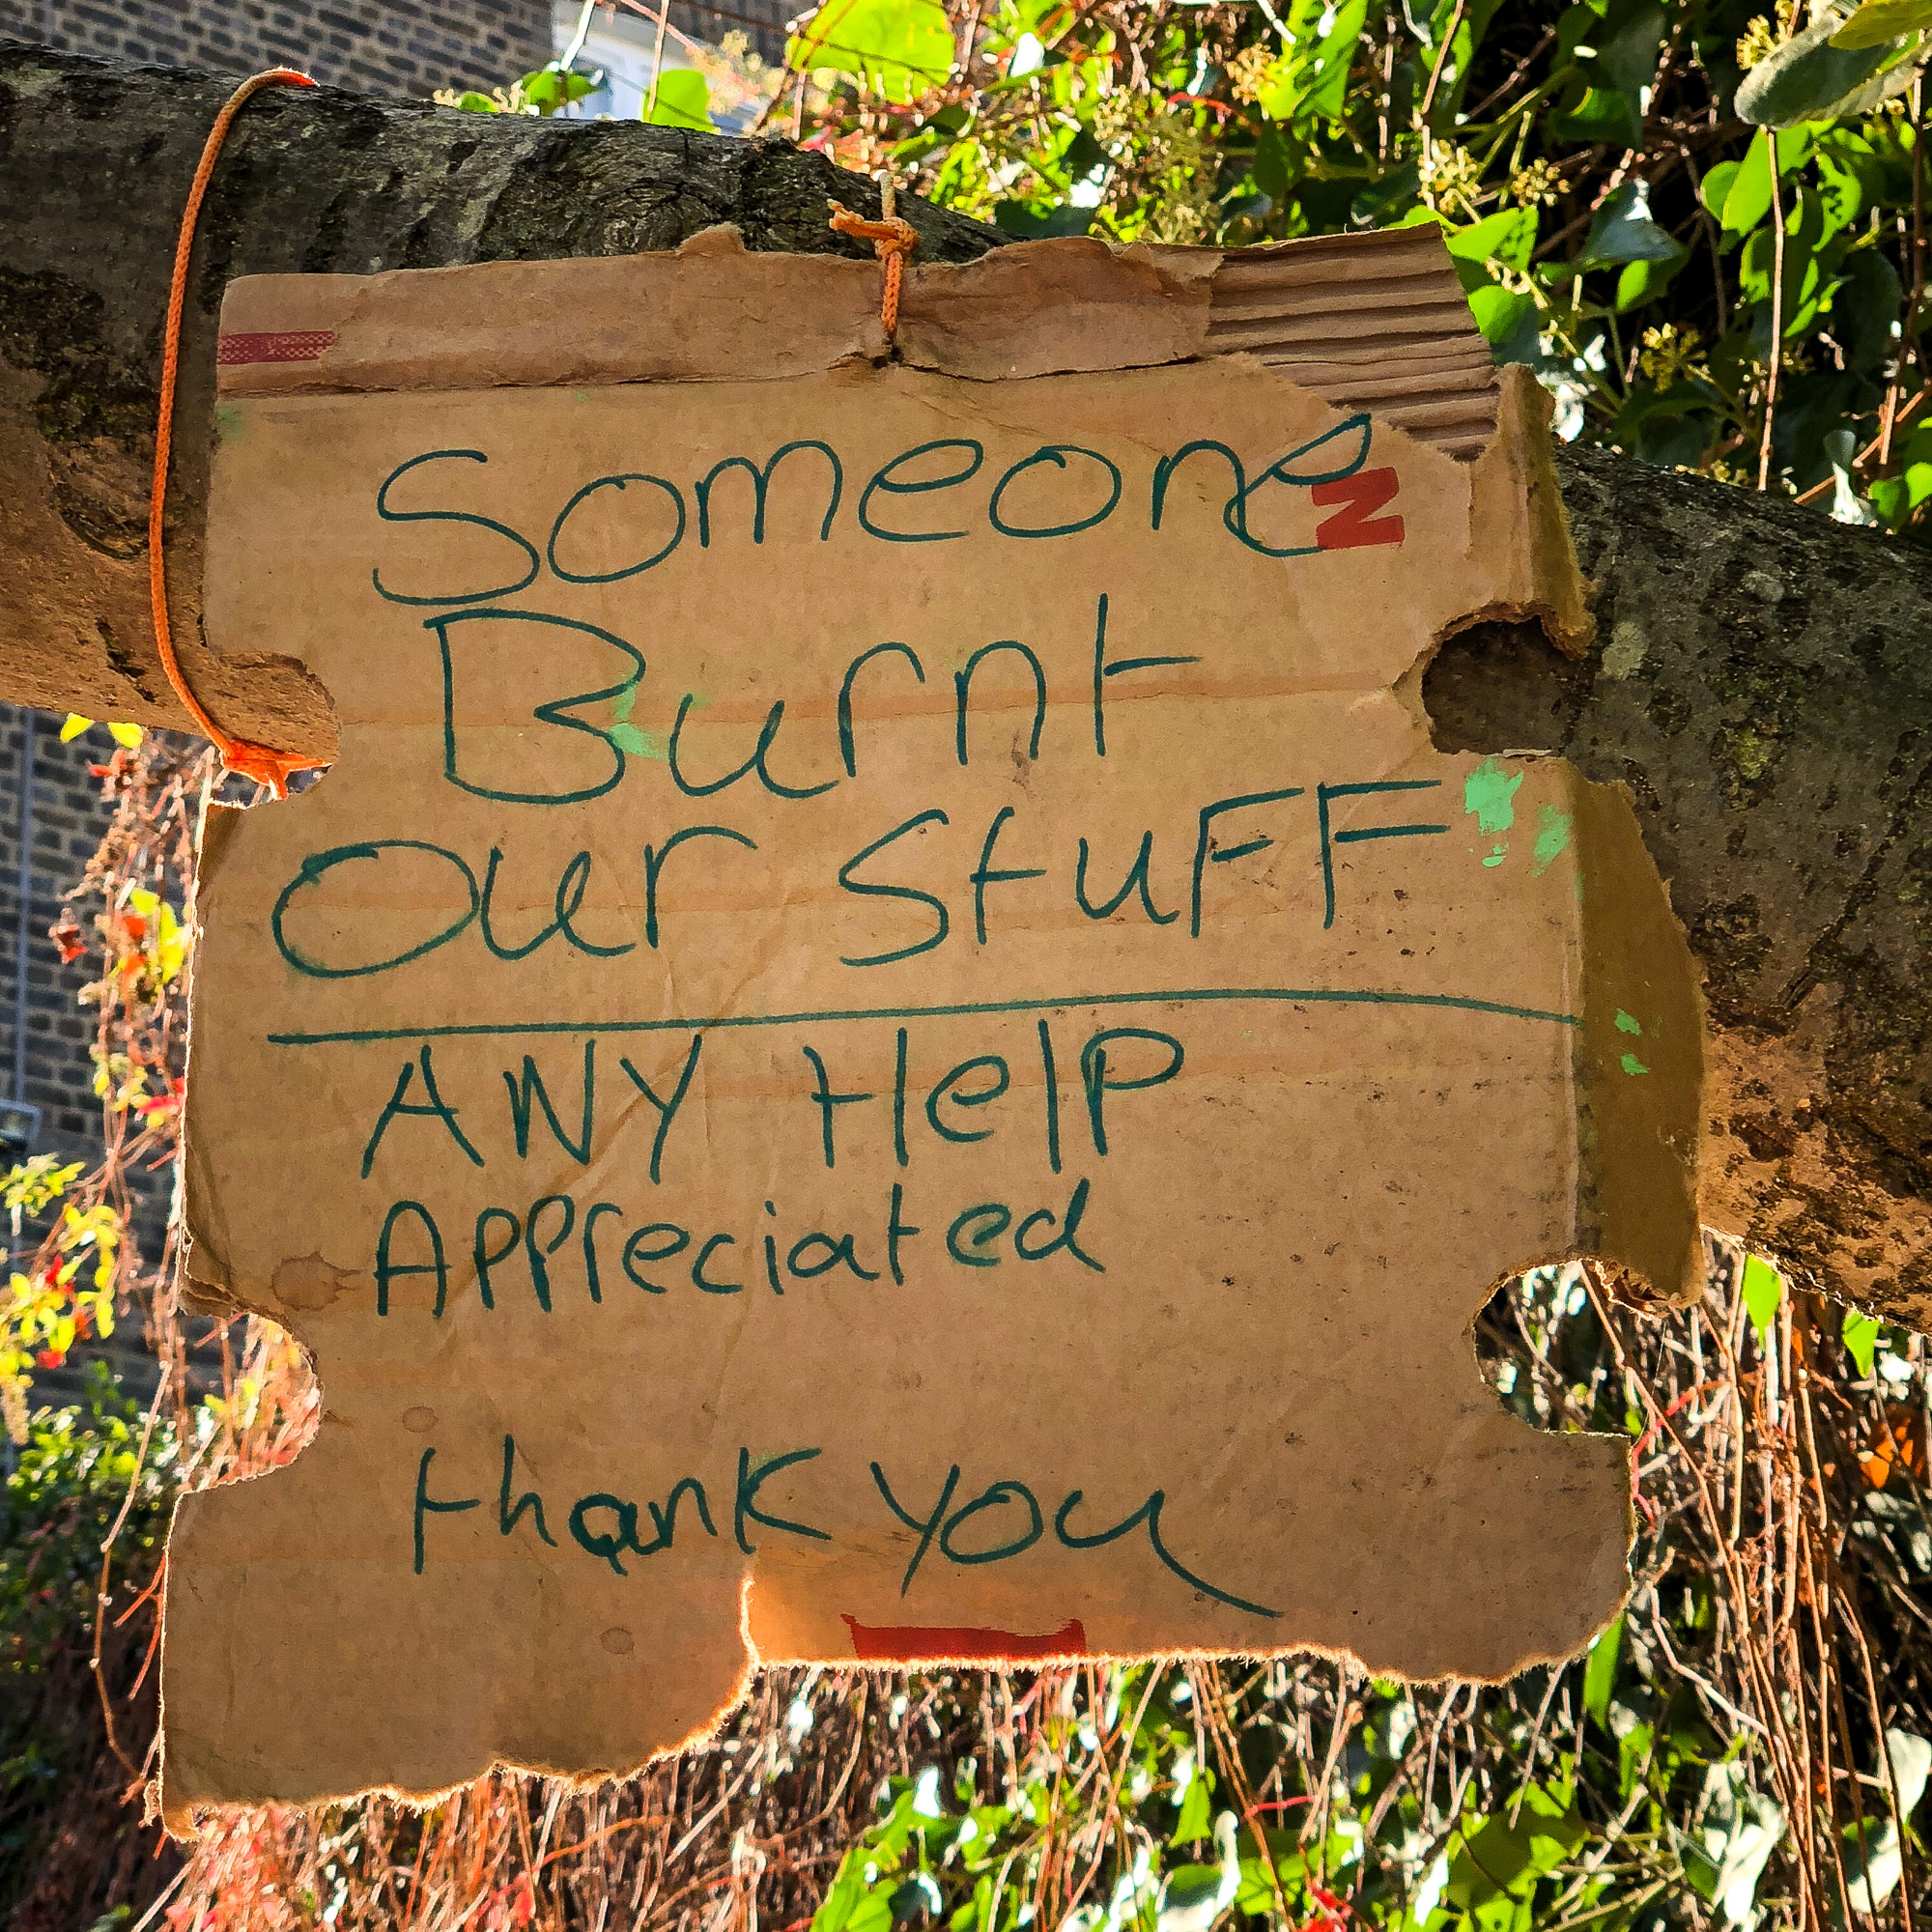 Someone
Burnt
our stuFF
ANY Help
Appreciated
thank you